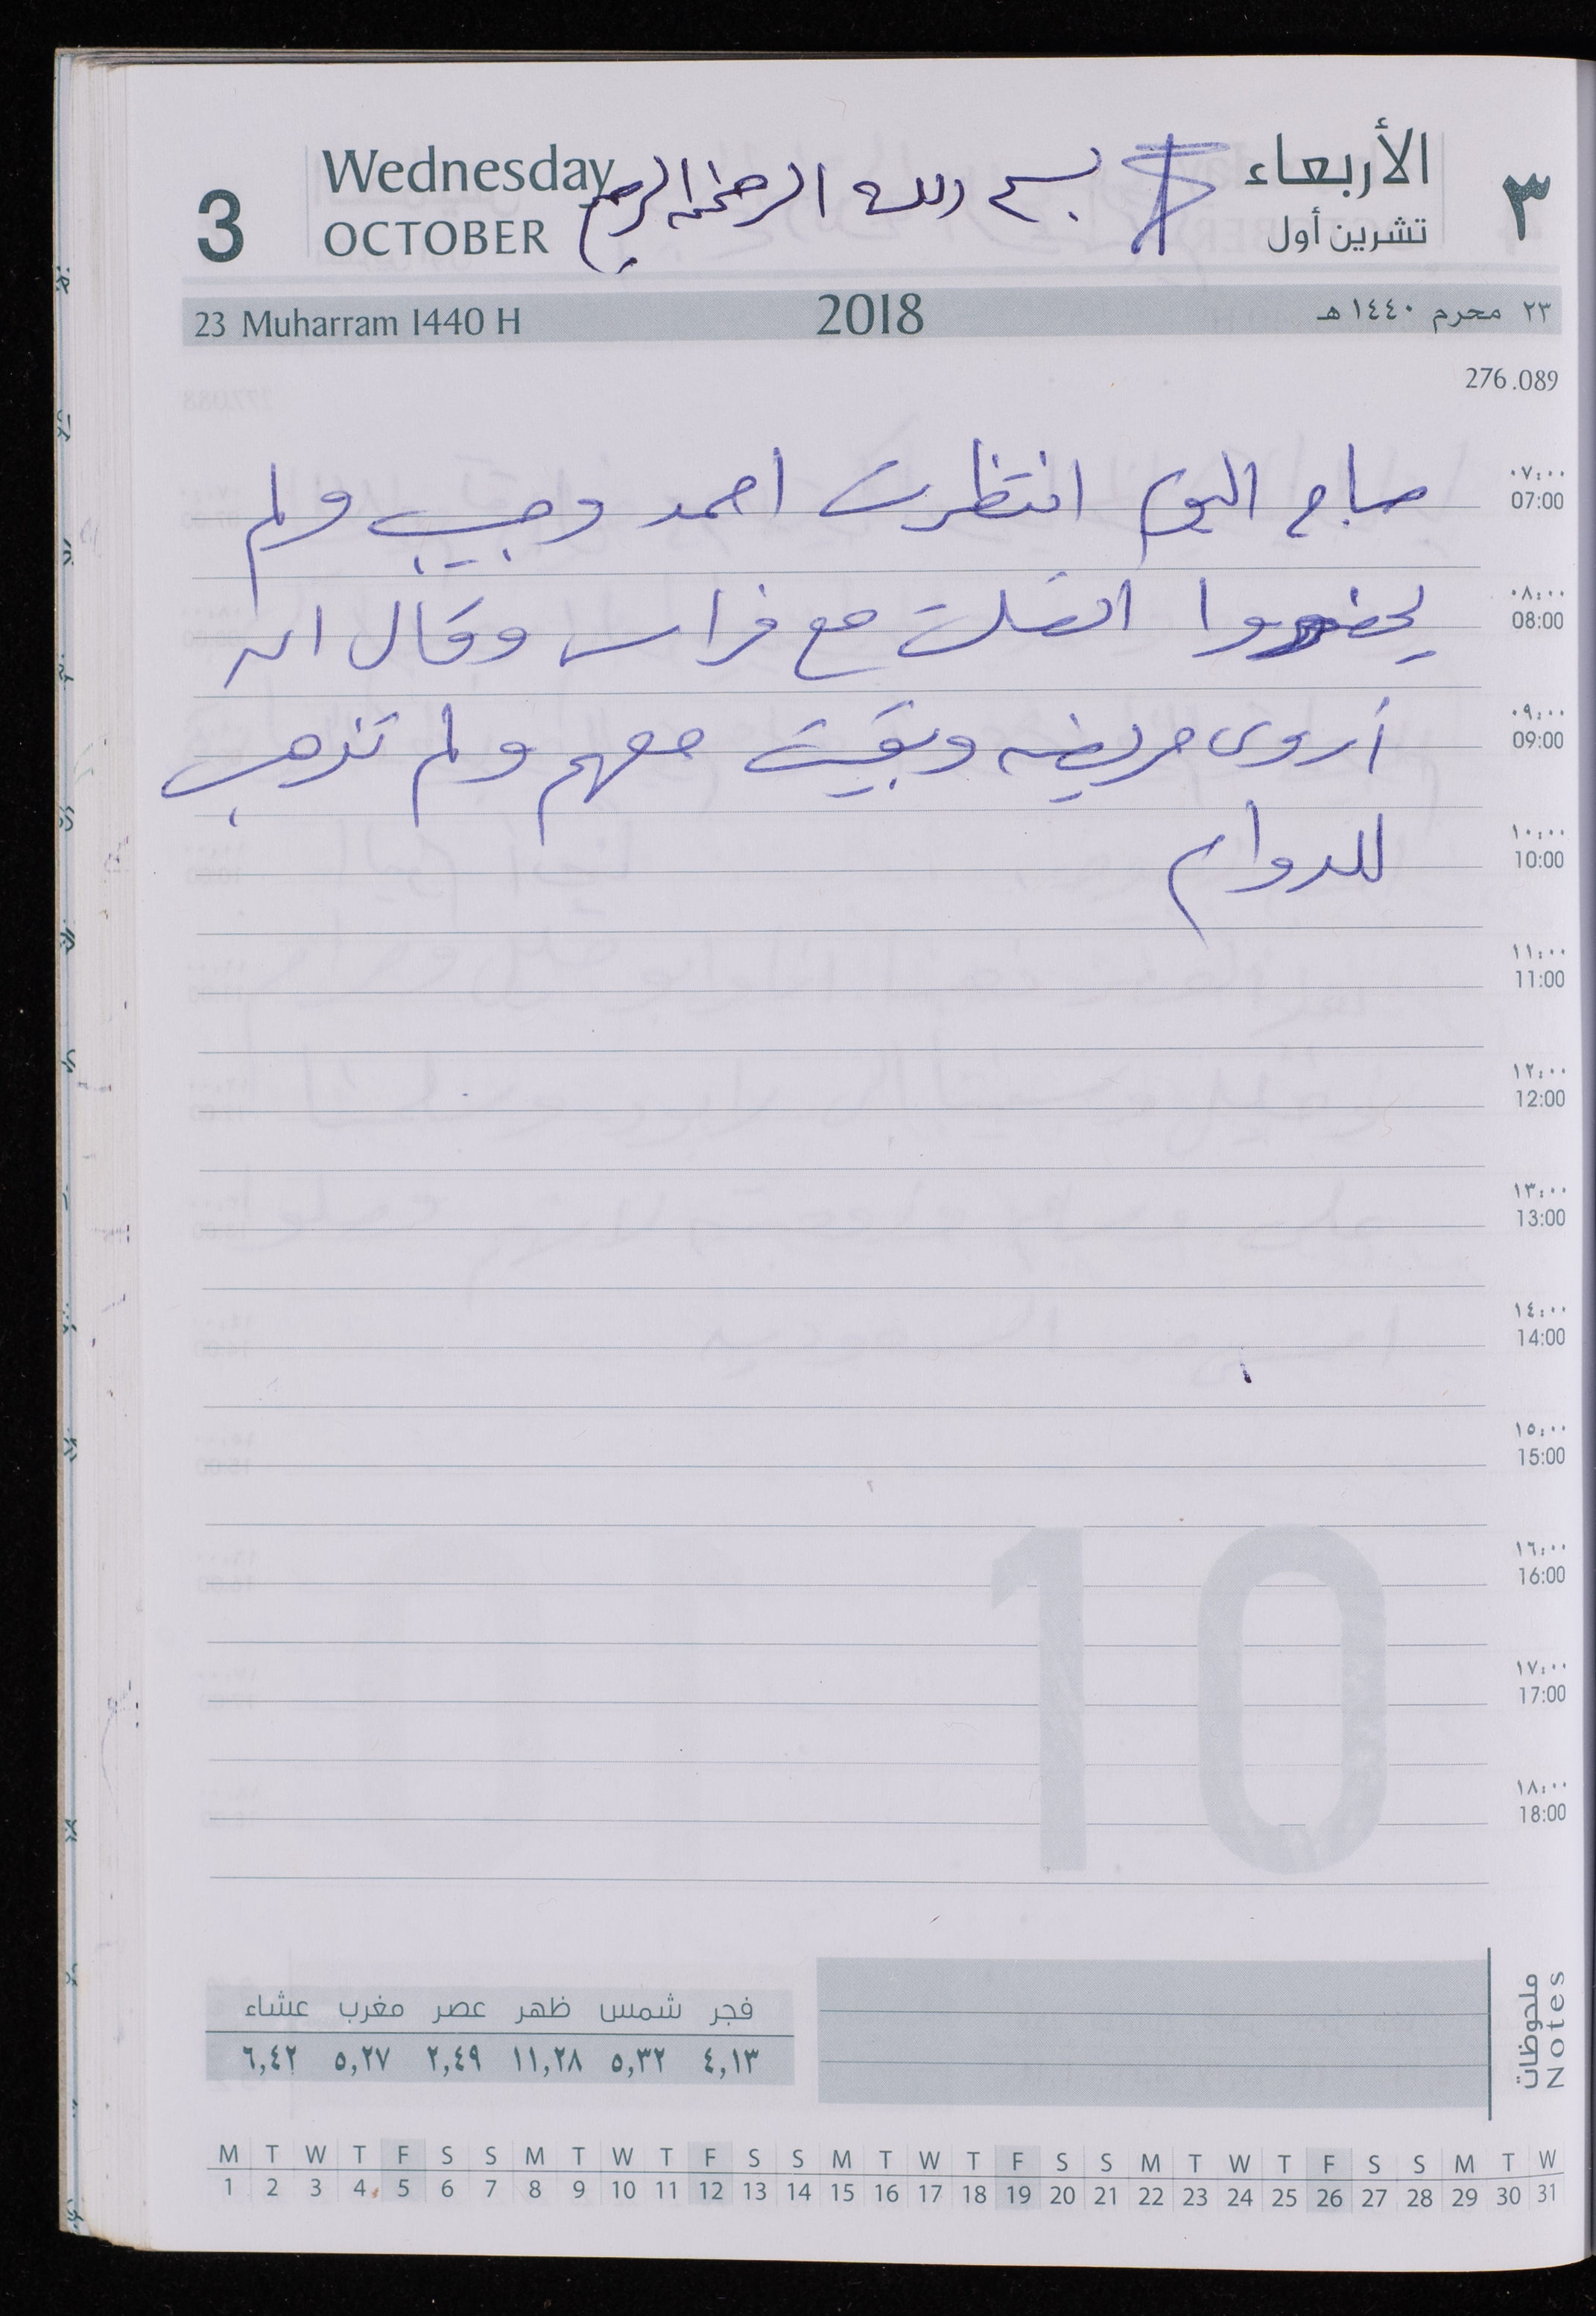 3 Wednesday OCTOBER
بسم الله الرحمن الرحيم
الأربعاء ٣
تشرين أول
23 Muharram 1440 H 2018 ٢٣ محرم ١٤٤٠ هـ
276.089
صباح اليوم انتظرت احمد وحبيب ولم
يحضروا اتصلت مع فراس وقال ان
أروى مريضه وبقيت معهم ولم تذهب
للدوام
٠٧:٠٠
07:00
٠٨:٠٠
08:00
٠٩:٠٠
09:00
١٠:٠٠
10:00
١١:٠٠
11:00
١٢:٠٠
12:00
١٣:٠٠
13:00
١٤:٠٠
14:00
١٥:٠٠
15:00
١٦:٠٠
16:00
١٧:٠٠
17:00
١٨:٠٠
18:00
10
ملحوظات
Notes
فجر شمس ظهر عصر مغرب عشاء
٤,١٣ ٥,٣٢ ١١,٢٨ ٢,٤٩ ٥,٢٧ ٦,٤٢
M T W T F S S M T W T F S S M T W T F S S M T W T F S S M T W
1 2 3 4 5 6 7 8 9 10 11 12 13 14 15 16 17 18 19 20 21 22 23 24 25 26 27 28 29 30 31